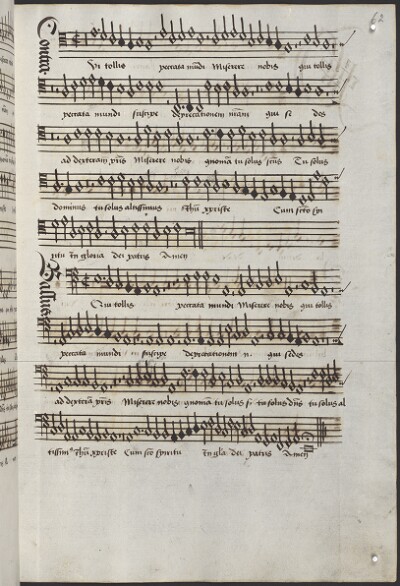 62
Contra
Qui tollis peccata mūdi Miserere nobis qui tollis
peccata mundi suscipe deprecationem nr̄am qui se des
ad dexteram pr̄is Miserere nobis qm̄ tu solus sc̄us Tu solus
dominus tu solus altissimus Ihū xp̄iste Cum sc̄to spi
ritu In gloria dei patris Amen
Bassus
Qui tollis peccata mundi Miserere nobis qui tollis
peccata mundi suscipe deprecationem n. qui sedes
ad dexterā pr̄is Miserere nobis tu solus s. tu solus dn̄s tu solus al
tissim9 Ihū xp̄iste Cum sc̄to spiritu In gl̄a dei patris Amen